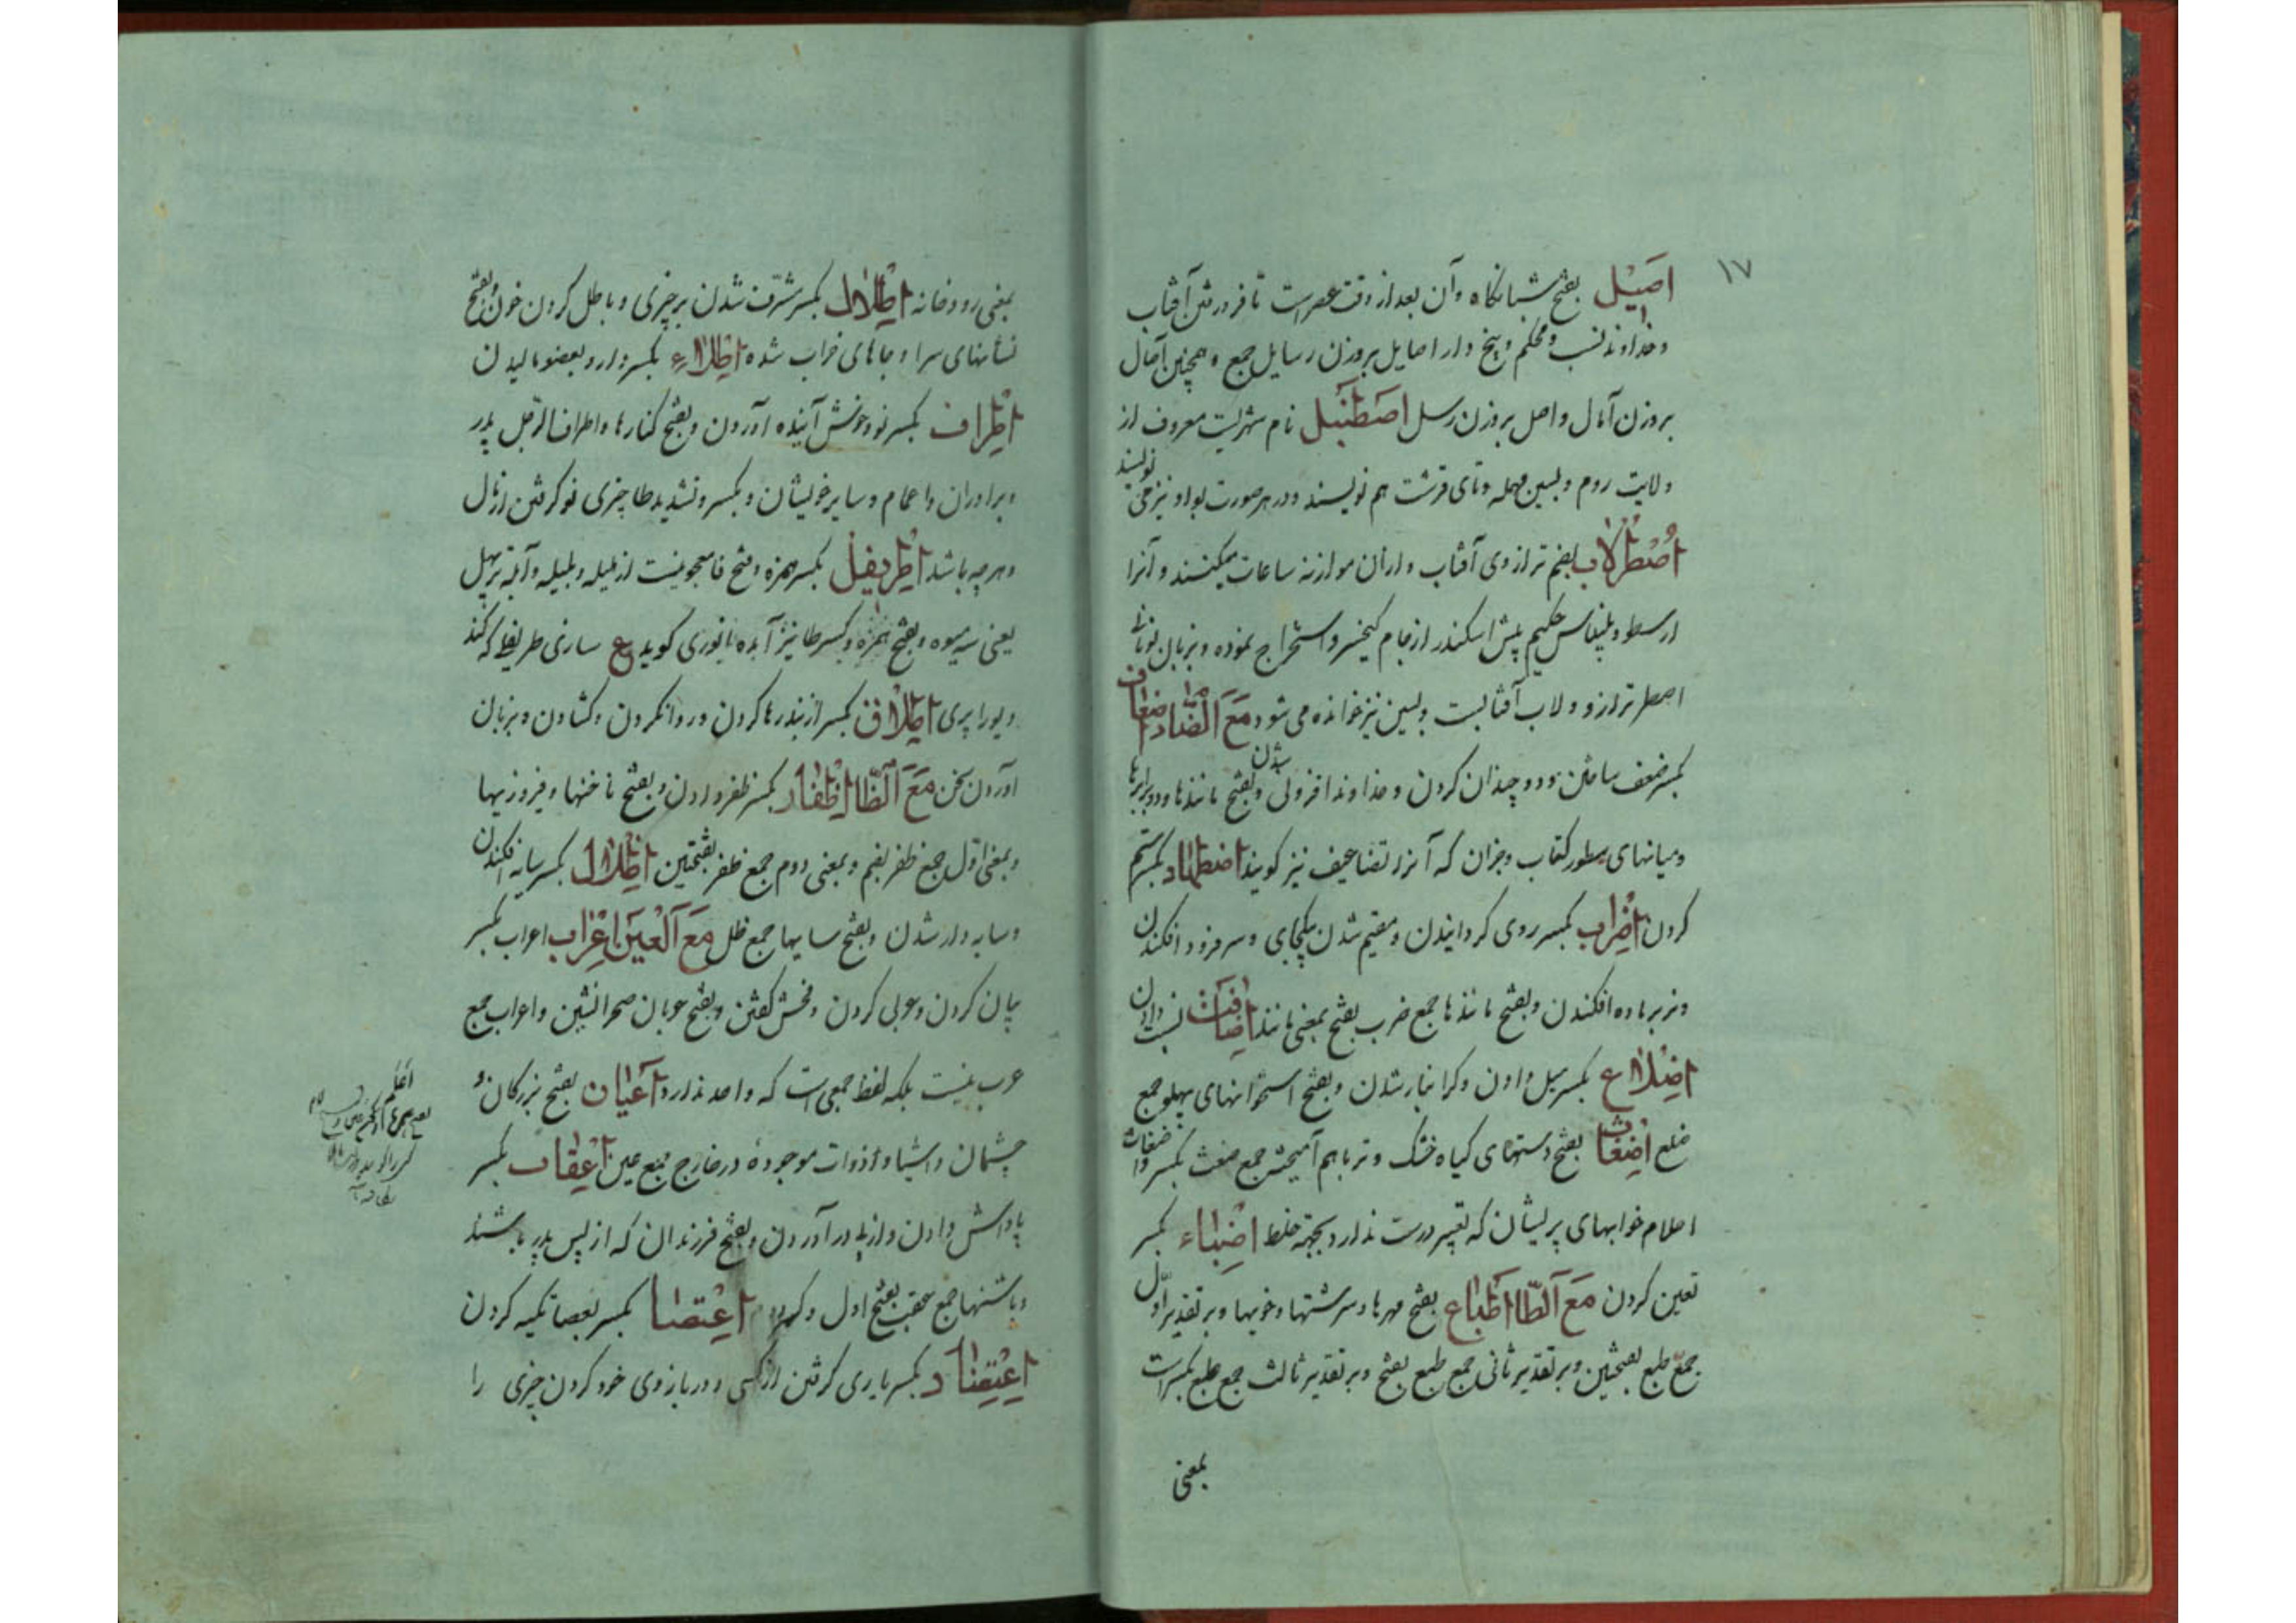 ۱۷
اصیل بفتح شبانگاه و آن بعد از وقت عصر است تا فرو رفتن آفتاب
و خداوند نسب و محکم و بیخ دار اصایل بروزن رسایل جمع و همچنین آصال
بروزن آمال و اصل بروزن رسل اصطنبل نام شهریست معروف از
ولایت روم و بسین مهمله و تای قرشت هم نویسند و در هر صورت بواو نیز می نویسند
اصطرلاب بضم ترازوی آفتاب و از آن موازنه ساعات میکنند و آنرا
ارسطو و بلیناس حکیم پیش اسکندر از جام کیخسرو استخراج نموده و بزبان یونانی
اصطر ترازو و لاب آفتابست و بسین نیز خوانده می شود مع الضاد اضعاف
بکسر ضعف ساختن و دو چندان کردن و خداوند افزونی شدن و بفتح مانندها و دو برابرها
و میانهای سطور کتاب و جز آن که آنرا تضاعیف نیز گویند اضطهاد بکسر ستم
کردن اضراب بکسر روی گردانیدن و مقیم شدن بیکجای و سر فرود افکندن
و نر بر ماده افکندن و بفتح مانندها جمع ضرب بفتح بمعنی مانند اضافت نسبت دادن
اضلاع بکسر میل دادن و گرانبار شدن و بفتح استخوانهای پهلو جمع
ضلع اضغاث بفتح دستهای گیاه خشک و تر باهم آمیخته جمع ضغث بکسر و اضغاث
احلام خوابهای پریشان که تعبیر درست ندارد بجهة خلط اضباء بکسر
تعین کردن مع الطا اطباع بفتح مهرها و سرشتها و خویها و بر تقدیر اول
جمع طبع بفتحتین و بر تقدیر ثانی جمع طبع بفتح و بر تقدیر ثالث جمع طبع بکسر است
بمعنی
بمعنی رودخانه اطلال بکسر مشرف شدن بر چیزی و باطل کردن خون و بفتح
نشانهای سرا و جاهای خراب شده اطلاء بکسر دارو بعضو مالیدن
اطراف بکسر نو و خوش آینده آوردن و بفتح کنارها و اطراف الرجل پدر
و برادران و اعمام و سایر خویشان و بکسر و تشدید طا چیزی نو گرفتن از مال
و هرچه باشد اطریفل بکسر همزه و فتح فا معجونیست از هلیله و بلیله و آمله تربهل
یعنی سه میوه و بفتح همزه و کسر طا نیز آمده انوری گوید ع سازی طریفل که کند
دیو را پری اطلاق بکسر از بند رها کردن و روان کردن و گشادن و بر زبان
آوردن سخن مع الظا اظفار بکسر ظفر دادن و بفتح ناخنها و فیروزیها
و بمعنی اول جمع ظفر بضم و بمعنی دوم جمع ظفر بفتحتین اظلال بکسر سایه افکندن
و سایه دار شدن و بفتح سایها جمع ظل مع العین اعراب اعراب بکسر
بیان کردن و عربی کردن و فحش گفتن و بفتح عربان صحرانشین و اعراب جمع
عرب نیست بلکه لفظ جمعی است که واحد ندارد اعیان بفتح بزرگان و
چشمان و اشیا و ذوات موجودهٔ در خارج جمع عین اعقاب بکسر
پاداش دادن و از پی در آوردن و بفتح فرزندان که از پس پدر باشند
و پاشنها جمع عقب بفتح اول و کسر دوم اعتصا بکسر بعصا تکیه کردن
اعتضاد بکسر یاری گرفتن از کسی و در بازوی خود کردن چیزی را
اعلم